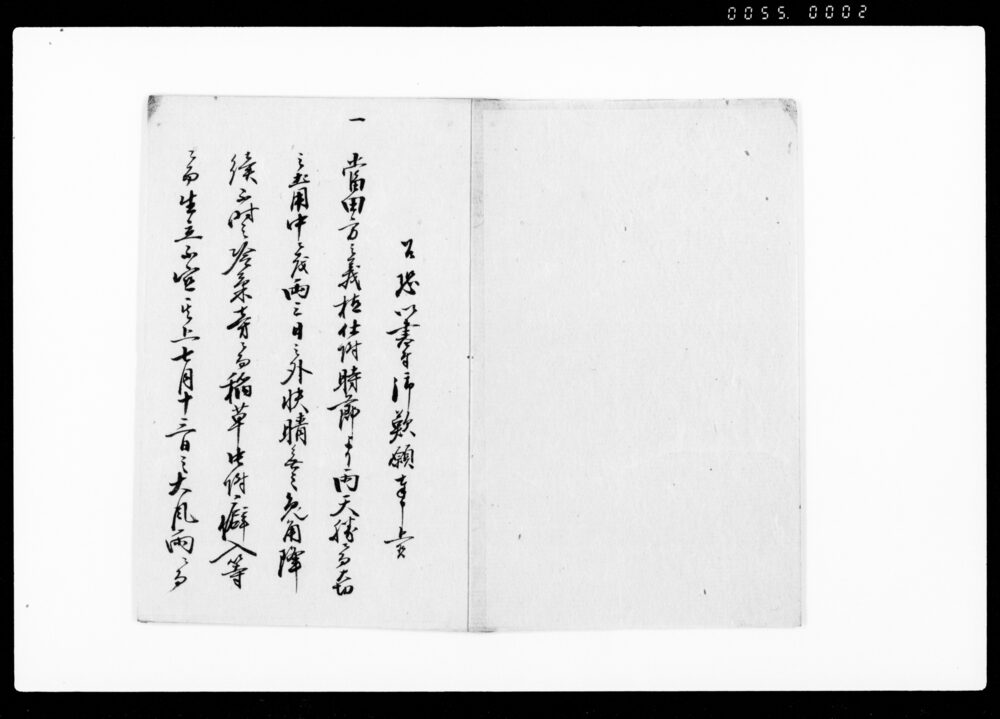 0055. 0002
乍恐以書付御歎願奉申上候
一 當田方之義植仕附時節より雨天勝ニ而大切
之土用中ニ茂両三日之外快晴無之兎角降
續不時之冷氣等ニ而稲草出附癖入等
ニ而生立不宜其上七月十三日之大風雨ニ而